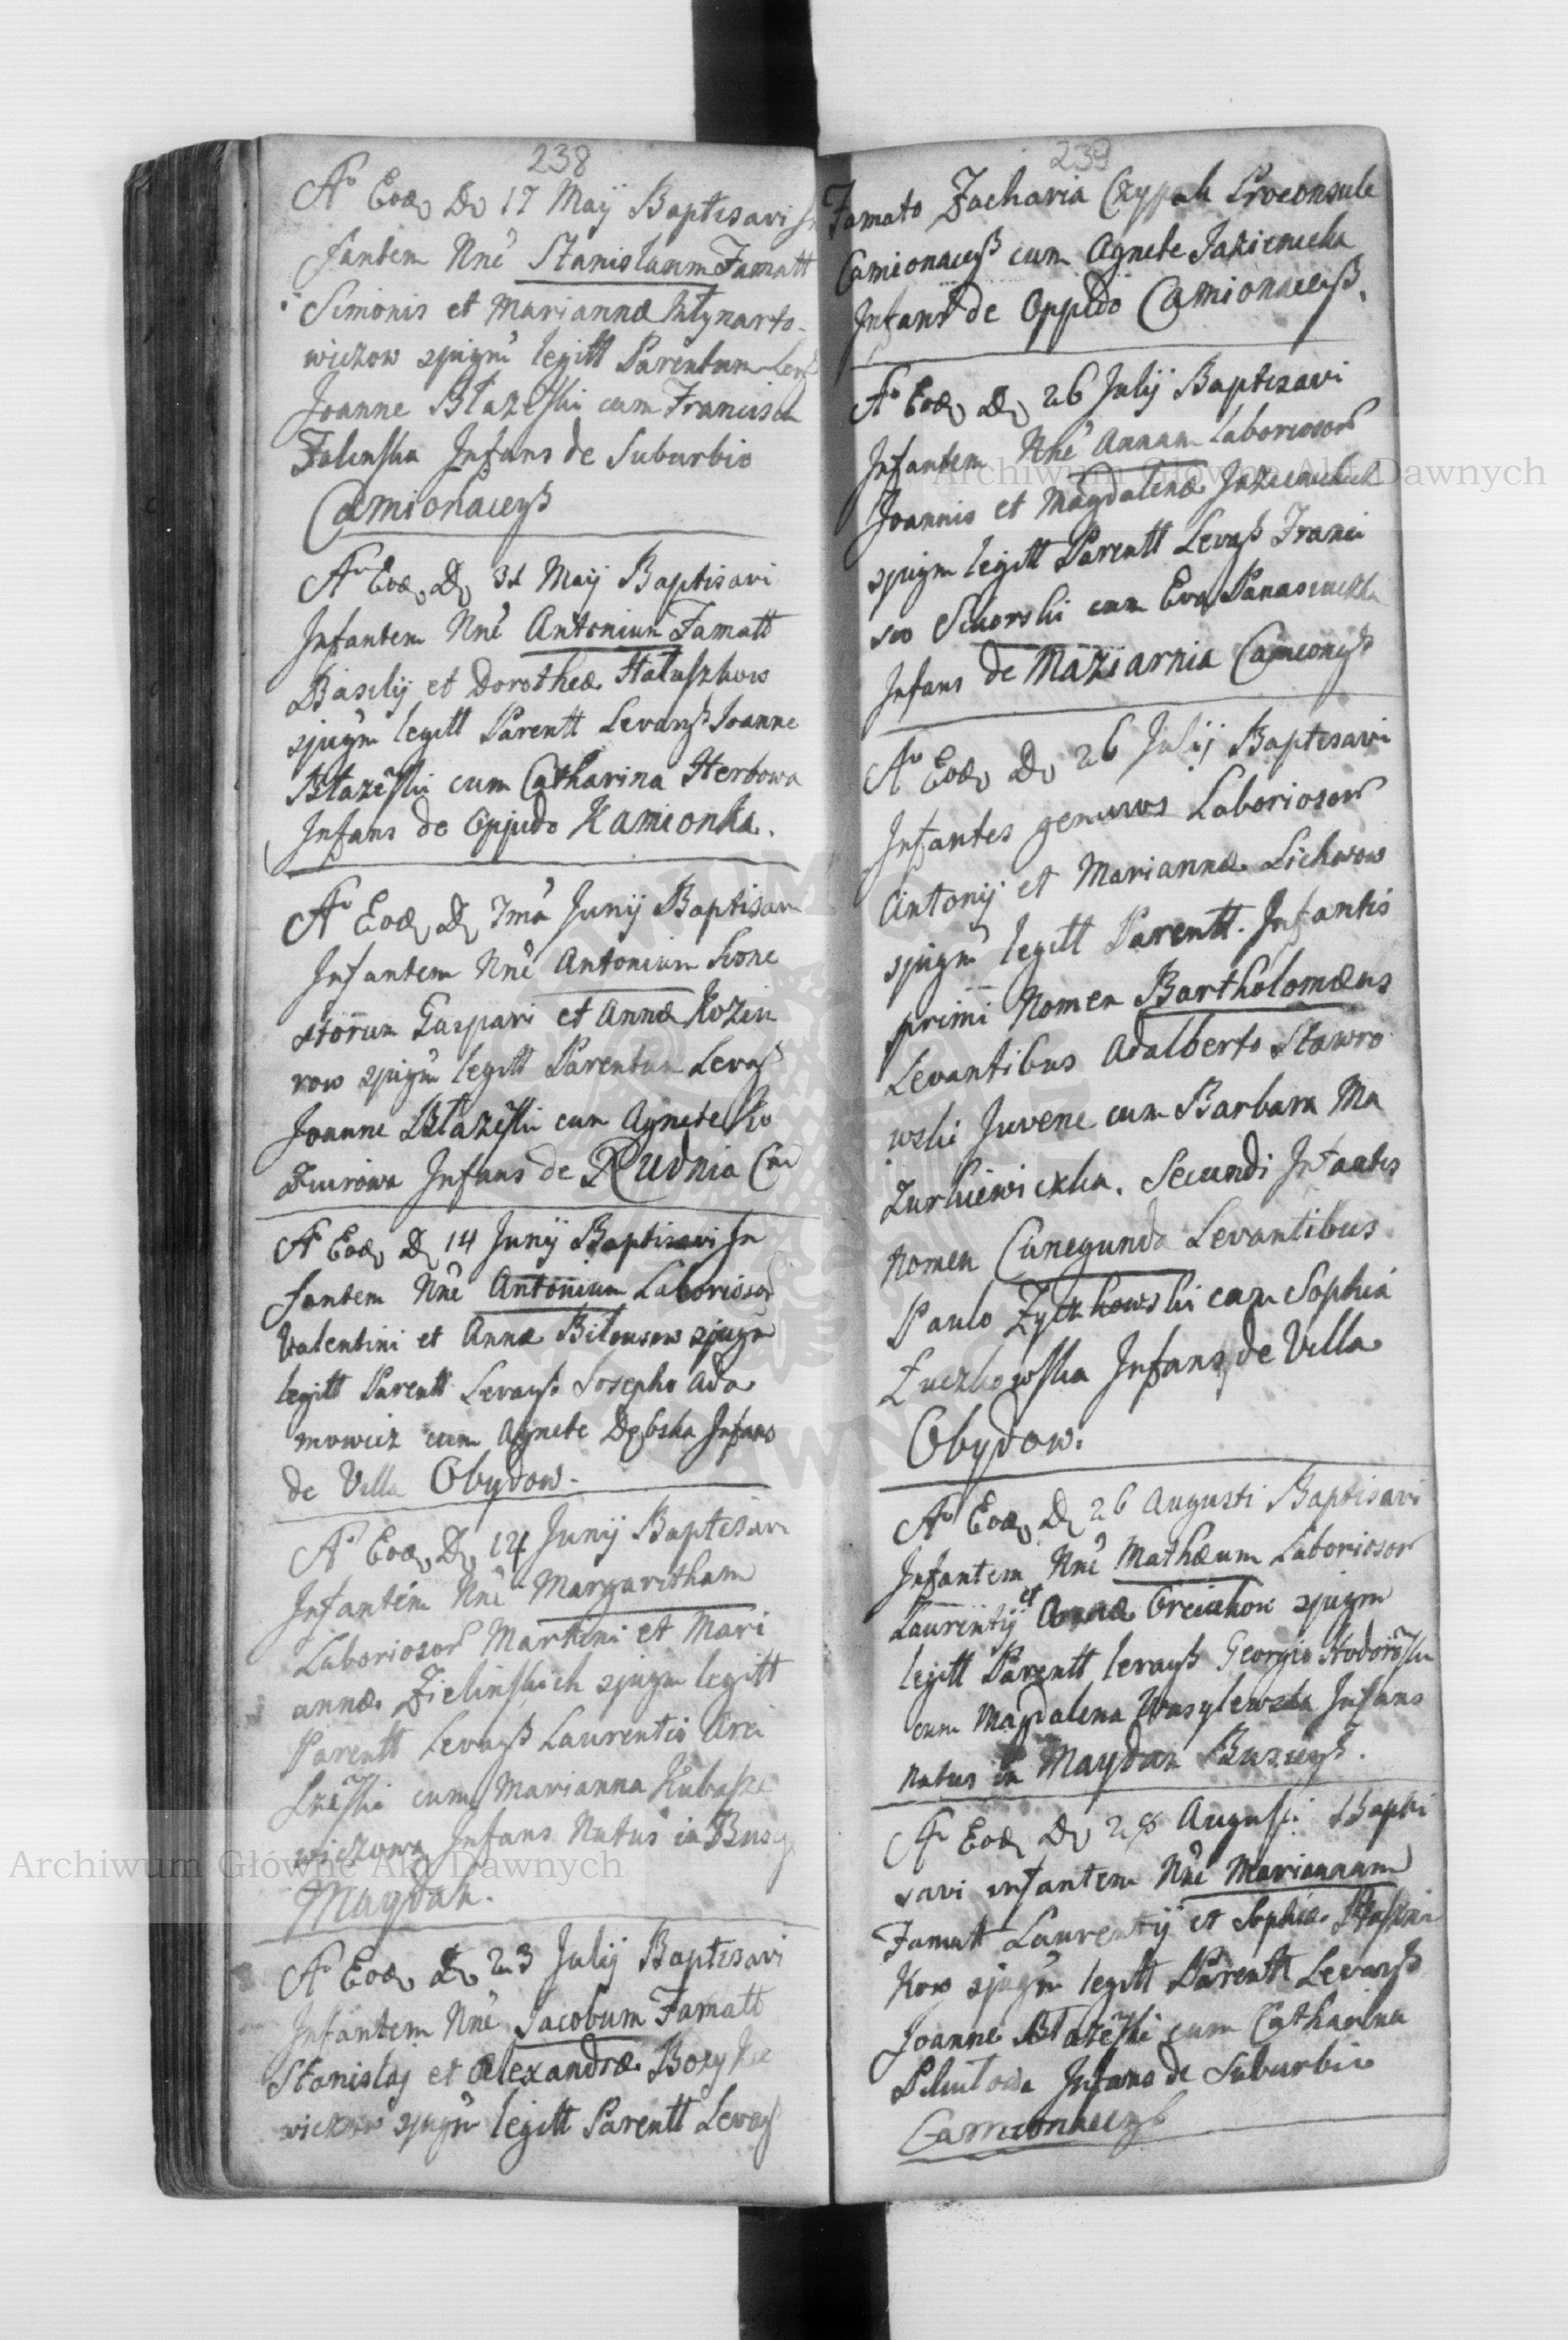 238
Aº Eod, D 17 Maij Baptisavi In
fantem Nne Stanislaum Famatt
Simonis et Mariannæ Młynarto
wiczow spugm legitt Parentum Levß
Joanne Błazeski cum Francisca
Zalinska Infans de Suburbio
Camionaceß
Aº Eod, D, 31 Maij Baptisavi
Infantem Nne Antonium Famatt
Basilij et Dorotheæ Hałuszkow
spugm legitt Parentt Levanß Joanne
Błazeski cum Catharina Herbowa
Infans de Oppido Kamionka.
Aº Eod, D, 7ma Junij Baptisavi
Infantem Nne Antonium hone
storum Gaspari et Annæ Koziu
row spugm legitt Parentum Levaß
Joanne Błazeski cum Agnete Ko
Infans de Rudnia
Aº Eod, D, 14 Junij Baptisavi In
fantem Nne Antonium Laboriosor
Valentini et Annæ Bilousow spugm
legitt Parentt Levanß Josepho Ada
mowicz cum Agnete Dębska Infans
de Villa Obydow
Aº Eod, D, 14 Junij Baptisavi
Infantem Nne Margaritham
Laboriosor Martini et Mari
annæ Zielinskich spugm legitt
Parentt Levaß Laurentio
cum Marianna Kubaszе
wiczowa Infans Natus in Busg
Maydan.
Aº Eod, D 23 Julij Baptisavi
Infantem Nne Jacobum Famatt
Stanislaj et Alexandræ Bozyke
wiczow spugm legitt Parentt Levaß
239
Famato Zacharia Czypak Proconsule
Camionaceß cum Agnete Jakiemicka
Infans de Oppido Camionaceß.
Aº Eod, D, 26 Julij Baptisavi
Infantem Nne Annam Laboriosor
Joannis et Magdalenæ
spugm legitt Parentt Levaß Franci
sco Sikorski cum Eva
Infans de Maziarnia Camionß
Aº Eod, D, 26 Julij Baptisavi
Infantes geminos Laboriosor
Antonij et Mariannæ Lichwow
spugm legitt Parentt. Infantis
primi Nomen Bartholomæus
Levantibus Adalberto Stawro
wski Juvene cum Barbara Ma
zurkiewiczka. Secundi Infantis
Nomen Cunegunda Levantibus
Paulo Zyczkowski cum Sophia
Łuczkowska Infans de Villa
Obydow.
Aº Eod, D, 26 Augusti Baptisavi
Infantem Nne Mathæum Laboriosor
Laurentij et Annæ spugm
legitt Parentt levaß Georgio Hodoroski
cum Magdalena Wasylewska Infans
natus in Maydan Buscenß.
Aº Eod, D 28 Augusti Bapti
savi infantem Nne Mariannam
Famatt Laurentij et Sophiæ
kow spugm legitt Parentt Levanß
Joanne Błazeski cum Catharina
Infans de Suburbio
Camionaceß
Archiwum Główne Akt Dawnych
Archiwum Główne Akt Dawnych